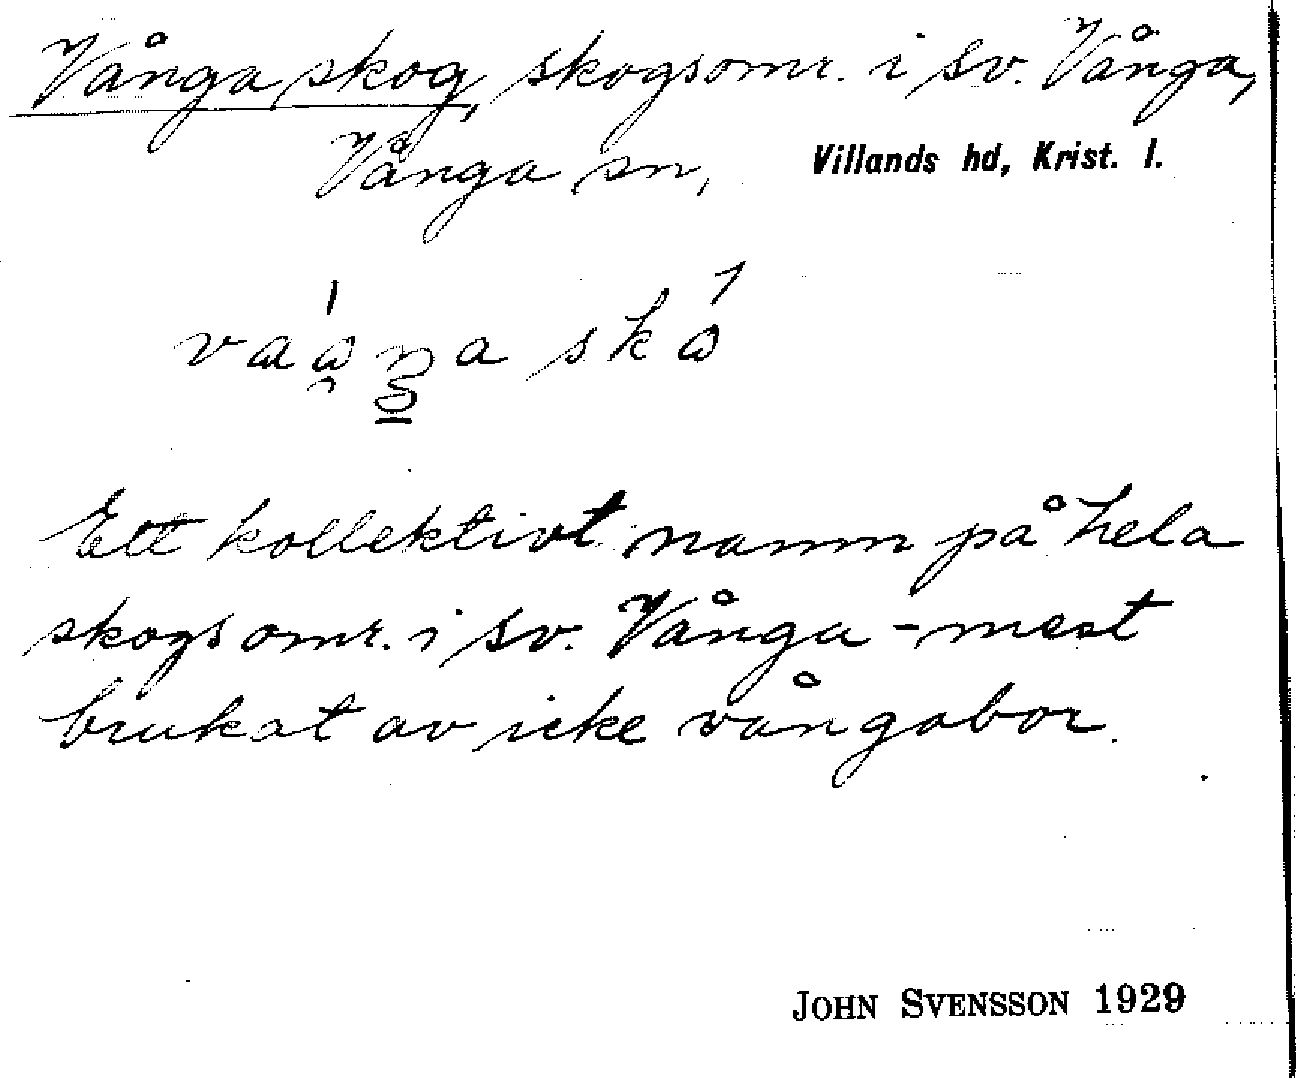 Vånga skog, skogsomr. i sv. Vånga,
Vånga sn, Villands hd, Krist. l.
Ett kollektivt namn på hela
skogsomr. i sv. Vånga - mest
brukat av icke vångabor.
JOHN SVENSSON 1929